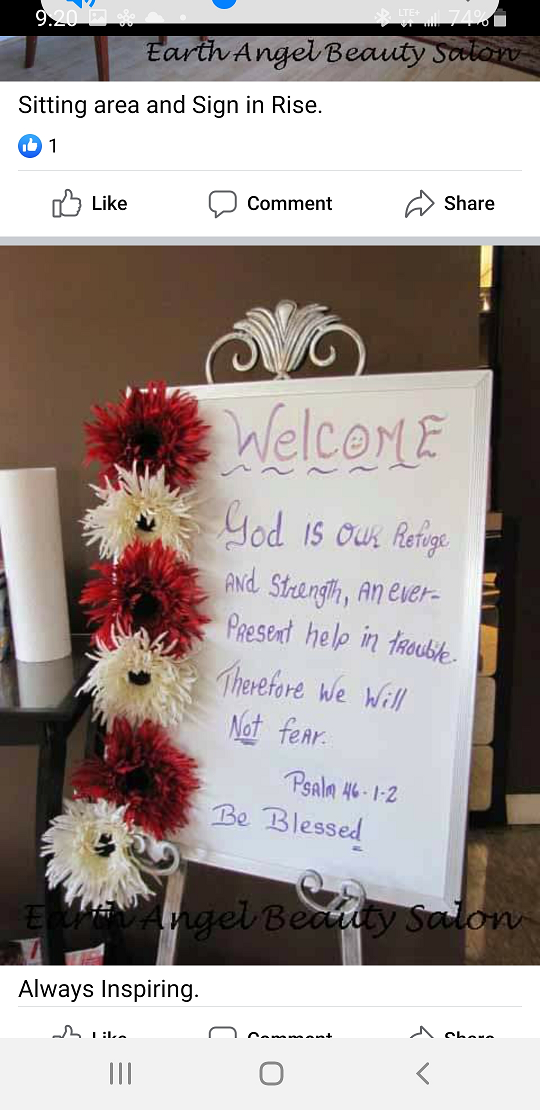 9:20
LTE+
74%
Earth Angel Beauty Salon
Sitting area and Sign in Rise.
1
Like Comment Share
Welcome
God is our Refuge
And Strength, An ever-
Present help in trouble.
Therefore We Will
Not fear.
Psalm 46-1-2
Be Blessed
Earth Angel Beauty Salon
Always Inspiring.
Like Comment Share